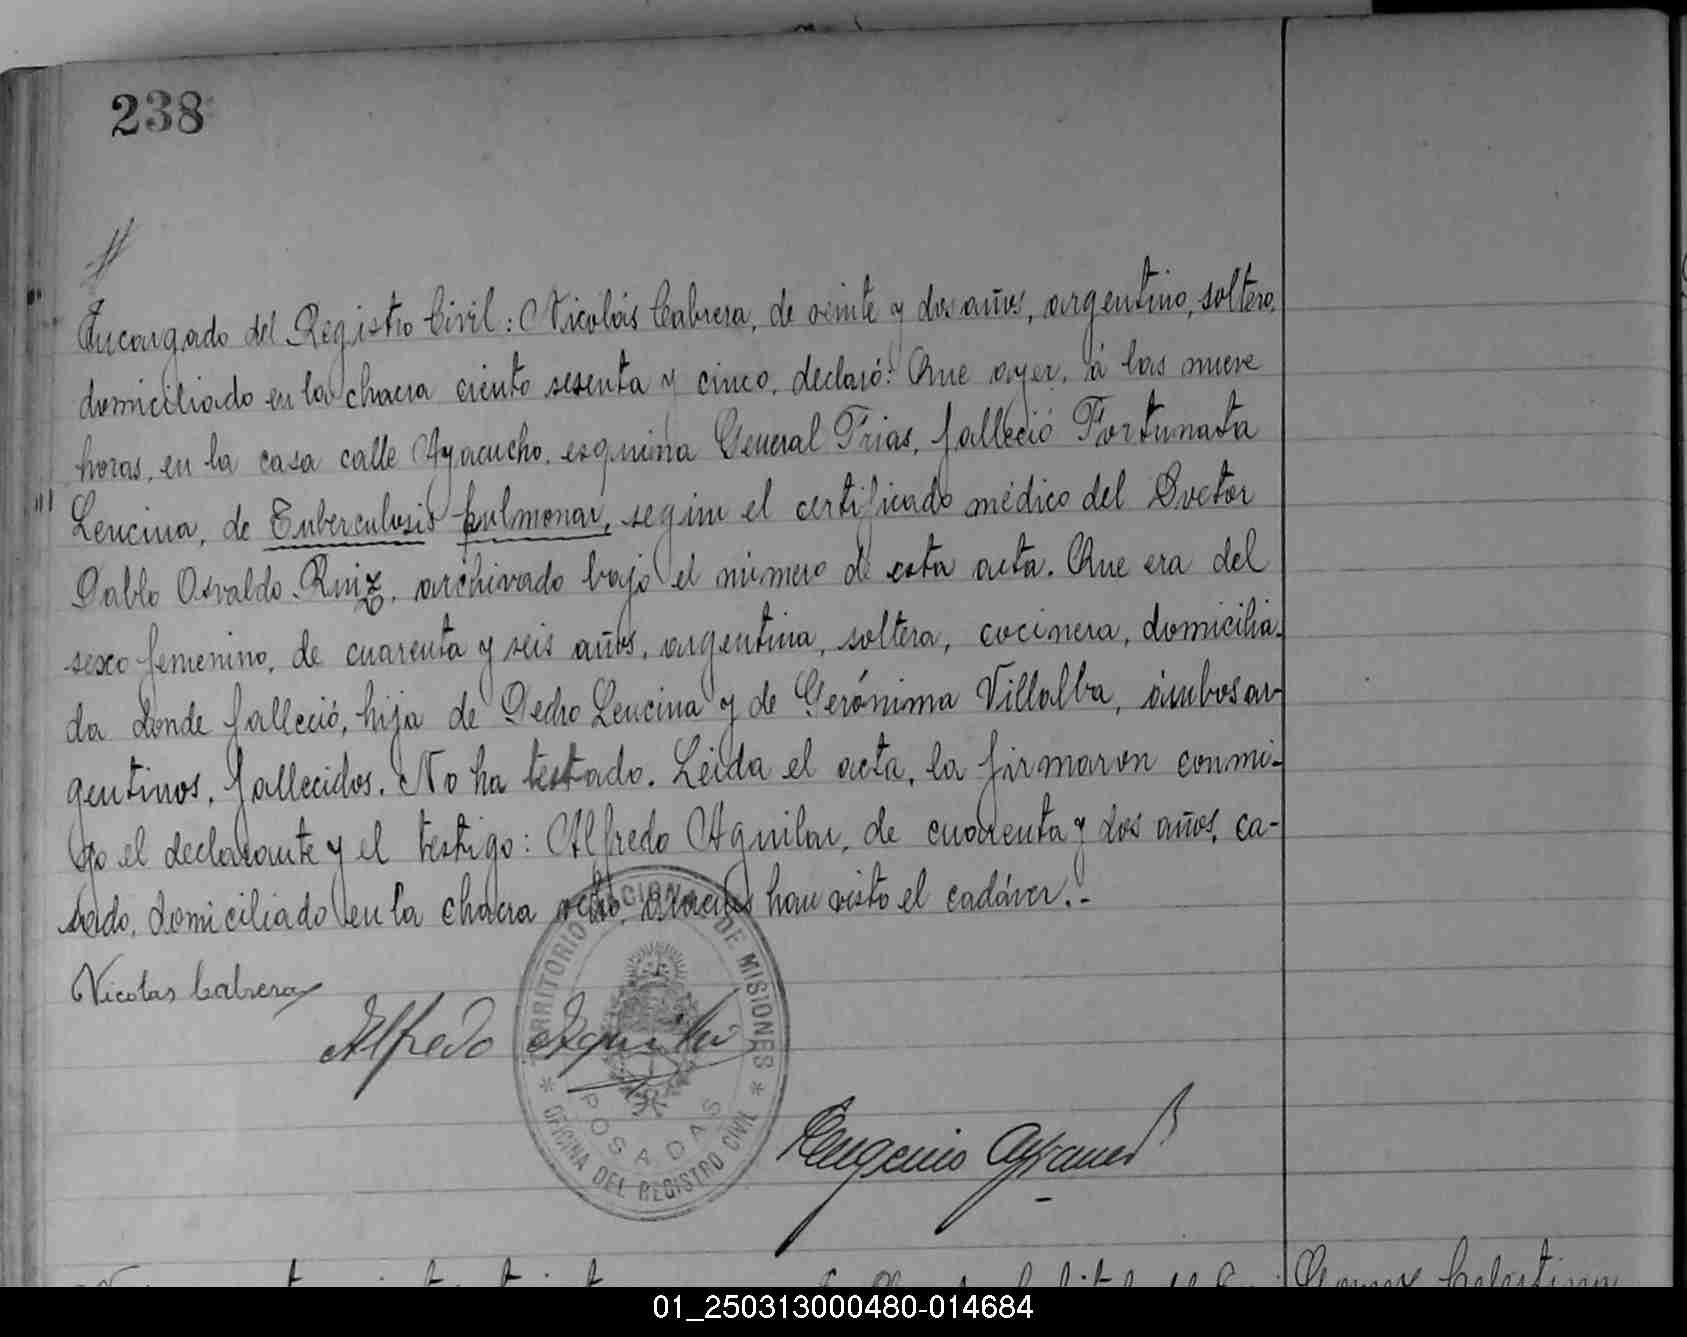 238
Encargado del Registro Civil: Nicolás Cabrera, de veinte y dos años, argentino, soltero,
domiciliado en la chacra ciento sesenta y cinco, declaró: Que ayer, á las nueve
horas, en la casa calle Ayacucho, esquina General Frias, falleció Fortunata
Lencina, de Tuberculosis pulmonar, segun el certificado médico del Doctor
Pablo Osvaldo Ruiz, archivado bajo el número de esta acta. Que era del
sexo femenino, de cuarenta y seis años, argentina, soltera, cocinera, domicilia-
da donde falleció, hija de Pedro Lencina y de Gerónima Villalba, ámbos ar-
gentinos, fallecidos. No ha testado. Leida el acta, la firmaron conmi-
go el declarante y el testigo: Alfredo Aguilar, de cuarenta y dos años, ca-
sado, domiciliado en la chacra ocho, quienes han visto el cadáver.-
Nicolas Cabrera
Alfredo Aguilar
TERRITORIO NACIONAL DE MISIONES
POSADAS
OFICINA DEL REGISTRO CIVIL
Eugenio
Celestina
01_250313000480-014684